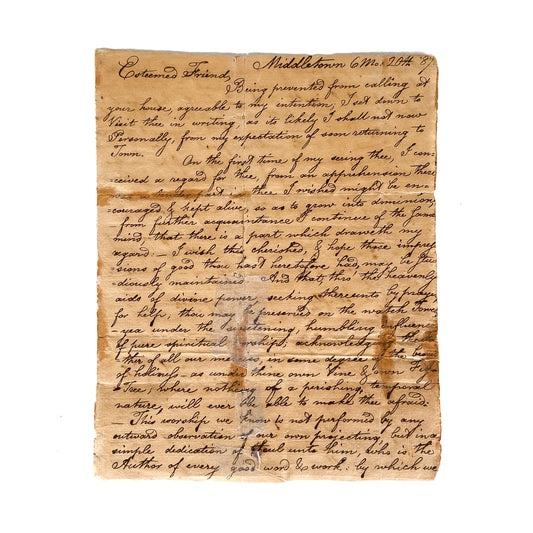 Middletown 6 Mo. 20th
Esteemed Friend,
Being prevented from calling at
your house, agreeable to my intention, I set down to
Visit thee in writing, as its likely I shall not now
Personally, from my expectation of soon returning to
Town.
On the first time of my seeing thee, I con
ceived a regard for thee, from an apprehension there
in thee I wished might be en
couraged, & kept alive, so as to grow into dominion
from further acquaintance I continue of the same
mind, that there is a part which draweth my
regard: — I wish this cherished, & hope those impres
sions of good thou hast heretofore had, may be stu
diously maintained. And that, thro the heavenly
aids of divine power, seeking thereunto by prayer
for help, thou may be preserved on the watch Tower
— yea under the humbling
of pure spiritual worship; acknowledg
ther of all our in some degree of the beau
of holiness — as under thine own Vine & own Fig
Tree; where nothing of a perishing, temporal
nature, will ever be able to make thee afraid:
— This worship we know to not performed by any
outward observation of our own projecting, but in a
simple dedication of Soul unto him, who is the
Author of every good word & work: by which we